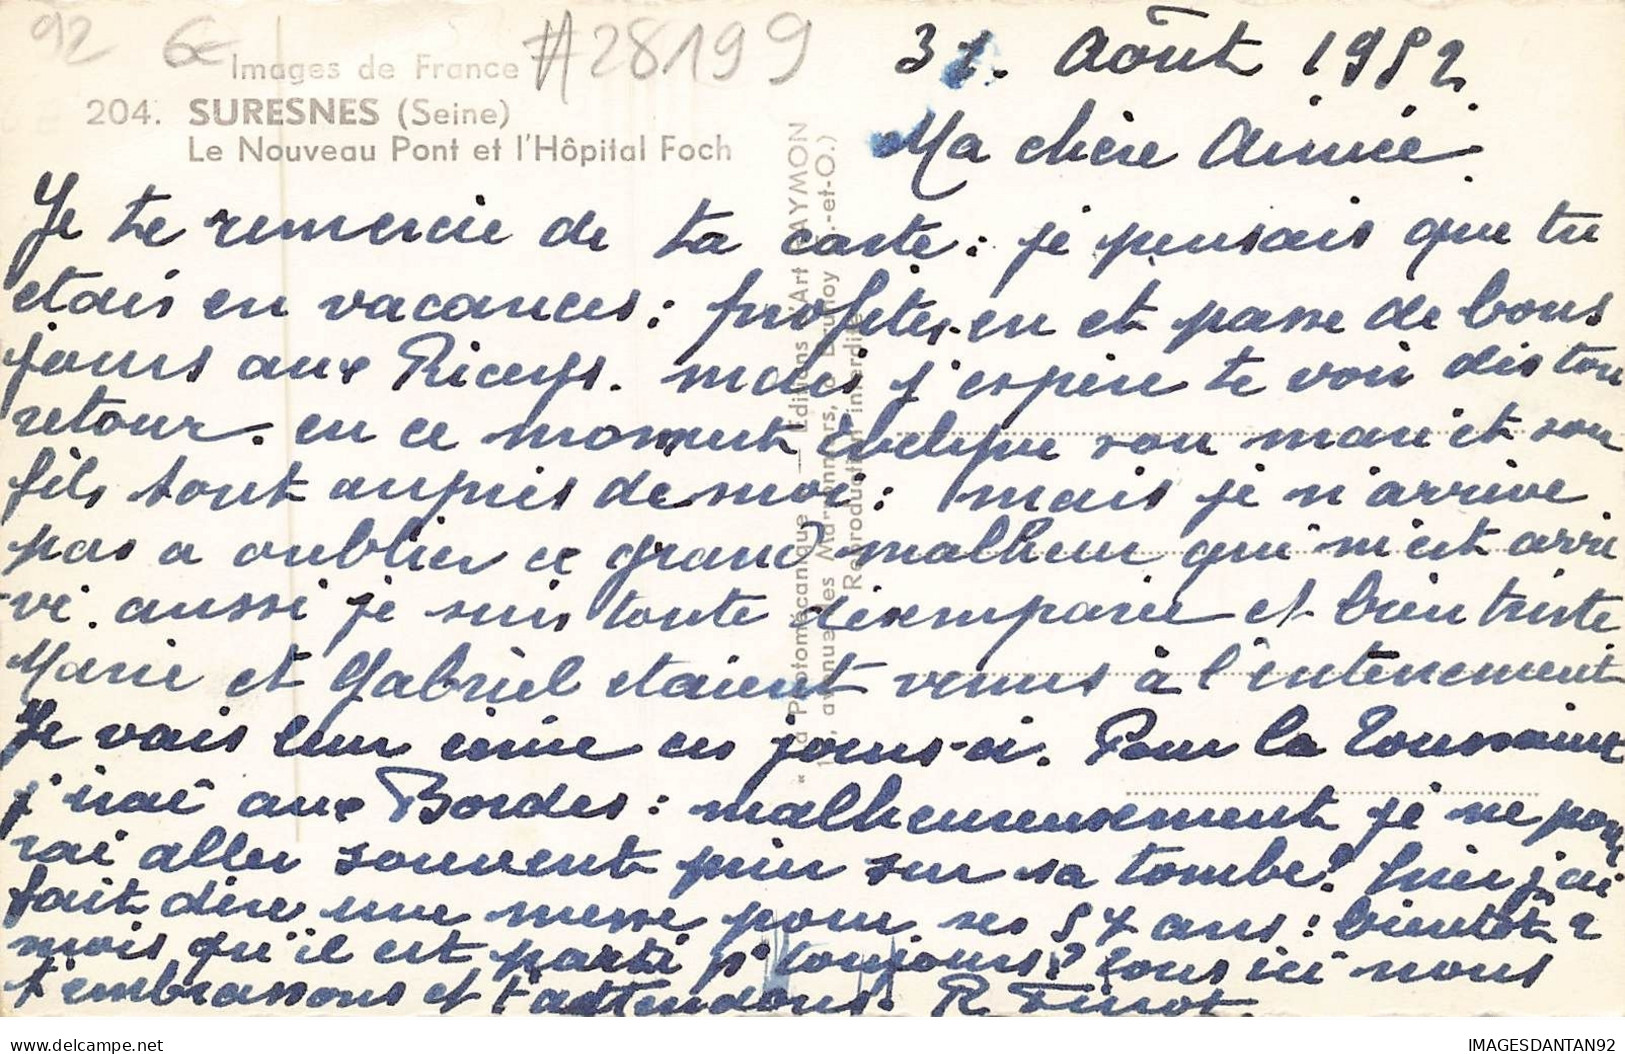 92 6€ #28199
Images de France
204. SURESNES (Seine)
Le Nouveau Pont et l'Hôpital Foch
31. Août 1952.
Ma chère Aimée.
Je te remercie de ta carte : je pensais que tu
etais en vacances : profites-en et passe de bons
jours aux Riceys. mais j'espère te voir dès ton
retour. en ce moment Evelyne son mari et son
fils sont auprès de moi : mais je n'arrive
pas a oublier ce grand malheur qui m'est arri
-vé. aussi je suis toute désemparée et bien triste
Marie et Gabriel etaient venus à l'enterrement
Je vais leur écrire ces jours-ci. Pour la Toussaint
j'irai aux Bordes : malheureusement je ne pour
rai aller souvent prier sur sa tombe! hier j'ai
fait dire une messe pour ses 54 ans : bientôt 2
mois qu'il est parti pr toujours? tous ici nous
t'embrassons et t'attendons. R Finot.
"La Photomécanique" — Editions d'Art RAYMON
avenue des Marronniers, à Brunoy (S.-et-O.)
Reproduction interdite
delcampe.net
IMAGESDANTAN92